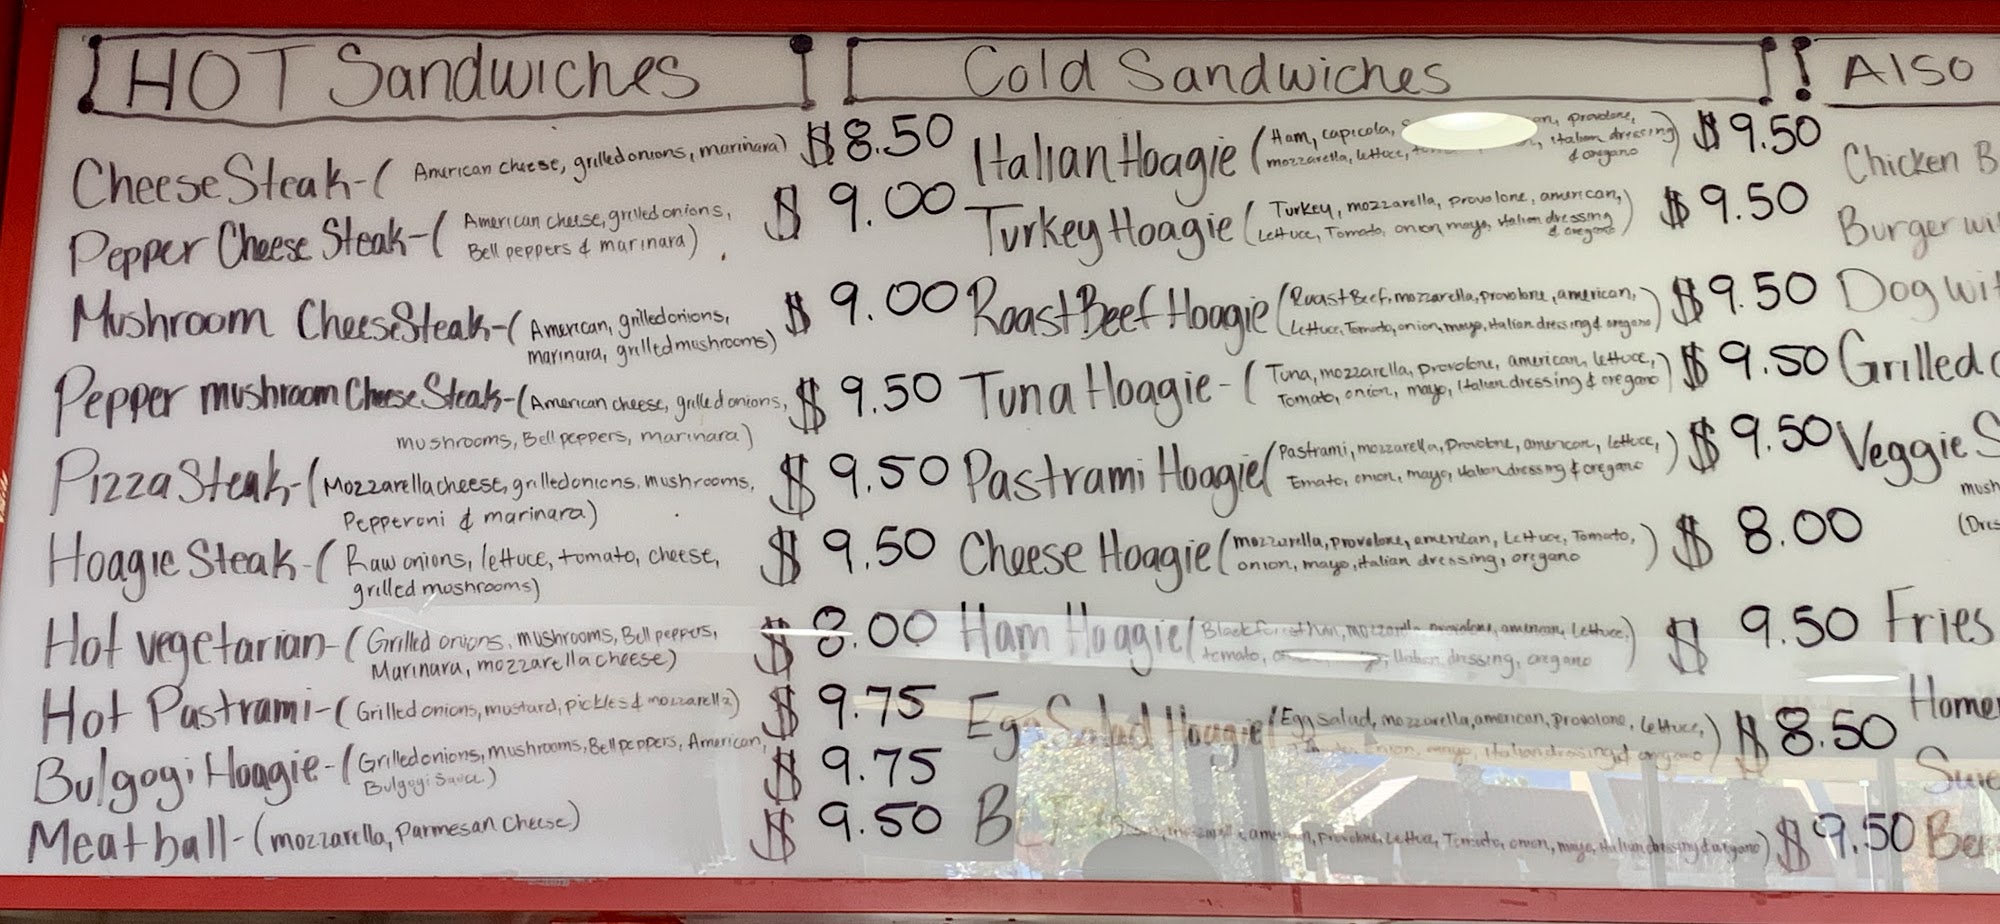 HOT Sandwiches
CheeseSteak-( American cheese, grilled onions, marinara) $8.50
Pepper Cheese Steak-( American cheese, grilled onions, $ 9.00
Bell peppers & marinara)
Mushroom CheeseSteak-( American, grilled onions, $ 9.00
marinara, grilled mushrooms)
Pepper mushroom Cheese Steak-(American cheese, grilled onions, $ 9.50
mushrooms, Bell peppers, marinara)
Pizza Steak-(Mozzarella cheese, grilled onions, mushrooms, $ 9.50
Pepperoni & marinara)
Hoagie Steak-( Raw onions, lettuce, tomato, cheese, $ 9.50
grilled mushrooms)
Hot vegetarian-( Grilled onions, mushrooms, Bell peppers, $ 8.00
Marinara, mozzarella cheese)
Hot Pastrami-( Grilled onions, mustard, pickles & mozzarella) $ 9.75
Bulgogi Hoagie-( Grilled onions, mushrooms, Bell peppers, American, $ 9.75
Bulgogi Sauce)
Meatball-(mozzarella, Parmesan Cheese) $ 9.50
Cold Sandwiches
Italian Hoagie (Ham, capicola, provolone, $ 9.50
mozzarella, lettuce, italian dressing
& oregano)
Turkey Hoagie (Turkey, mozzarella, provolone, american, $ 9.50
Lettuce, Tomato, onion, mayo, italian dressing
& oregano)
Roast Beef Hoagie (Roast Beef, mozzarella, provolone, american, $ 9.50
Lettuce, Tomato, onion, mayo, italian dressing & oregano)
Tuna Hoagie-( Tuna, mozzarella, provolone, american, lettuce, $ 9.50
Tomato, onion, mayo, Italian dressing & oregano)
Pastrami Hoagie(Pastrami, mozzarella, provolone, american, lettuce, $ 9.50
Tomato, onion, mayo, italian dressing & oregano)
Cheese Hoagie(mozzarella, provolone, american, Lettuce, Tomato, $ 8.00
onion, mayo, italian dressing, oregano)
Ham Hoagie(Black forest Ham, mozzarella, provolone, american, lettuce, $ 9.50
tomato, Italian dressing, oregano)
Egg Salad Hoagie(Egg salad, mozzarella, american, provolone, lettuce, $ 8.50
Tomato, onion, mayo, italian dressing & oregano)
american, provolone, Lettuce, Tomato, onion, mayo, italian dressing & oregano) $ 9.50
Also
Chicken B
Burger wi
Dog wit
Grilled
Veggie S
mush
(Dres
Fries
Home